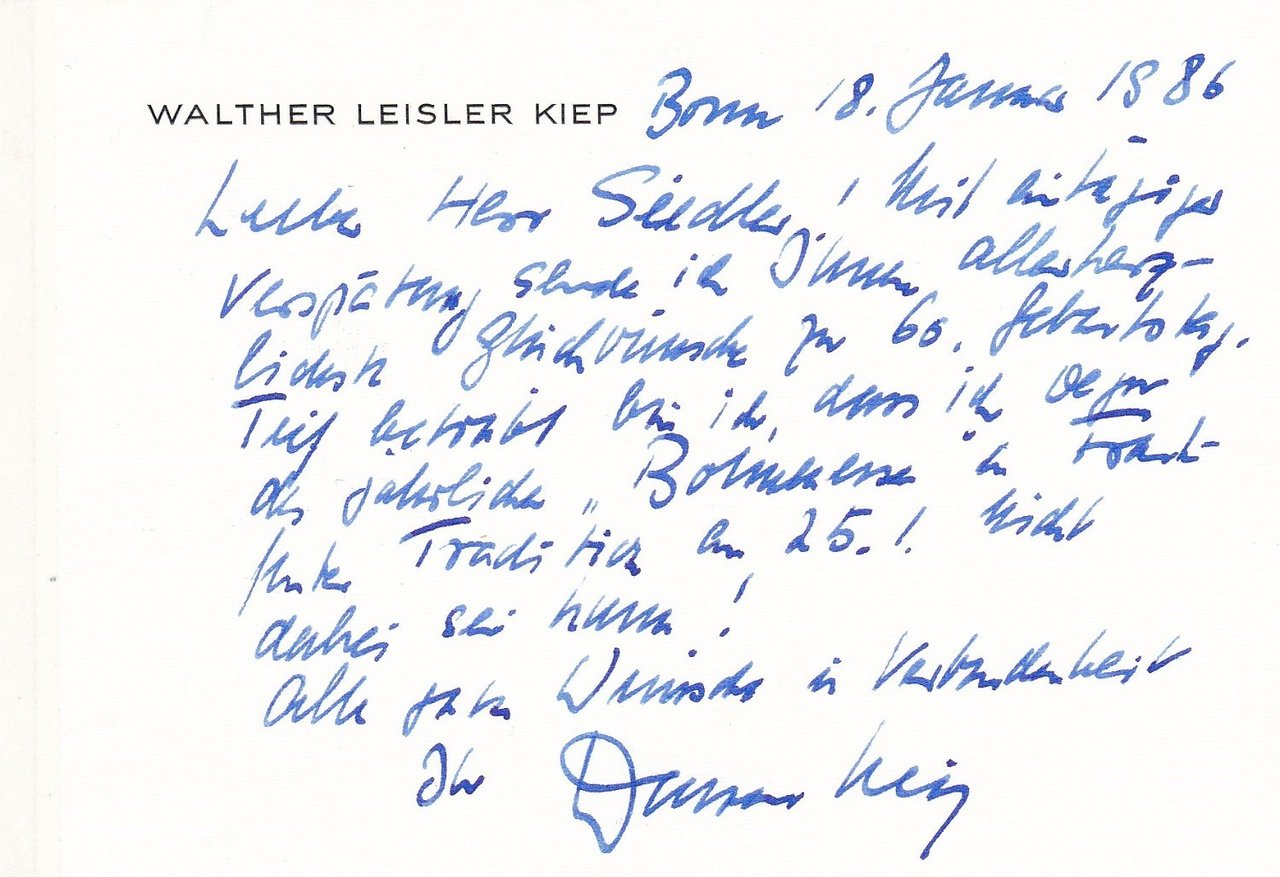 WALTHER LEISLER KIEP Bonn 18. Januar 1986
Lieber Herr Siedler! Mit eintägiger
Verspätung sende ich Ihnen allerherz-
lichste Glückwünsche zum 60. Geburtstag.
Tief betrübt bin ich, dass ich wegen
der jährlichen „Bohnenessen in Frank-
furter Tradition am 25.1. nicht
dabei sein kann!
Alle guten Wünsche in Verbundenheit
Ihr Kiep